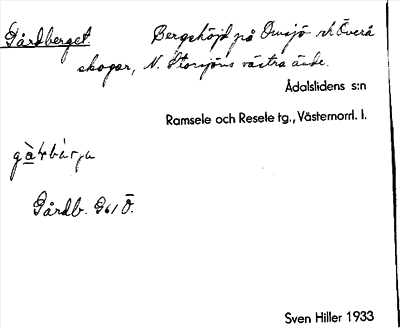 Gårdberget
Bergshöjd på Omsjö o. Överå
skogar, N. Storsjöns västra ände.
Ådalslidens s:n
Ramsele och Resele tg., Västernorrl. l.
Gårdb. G61 Ö.
Sven Hiller 1933